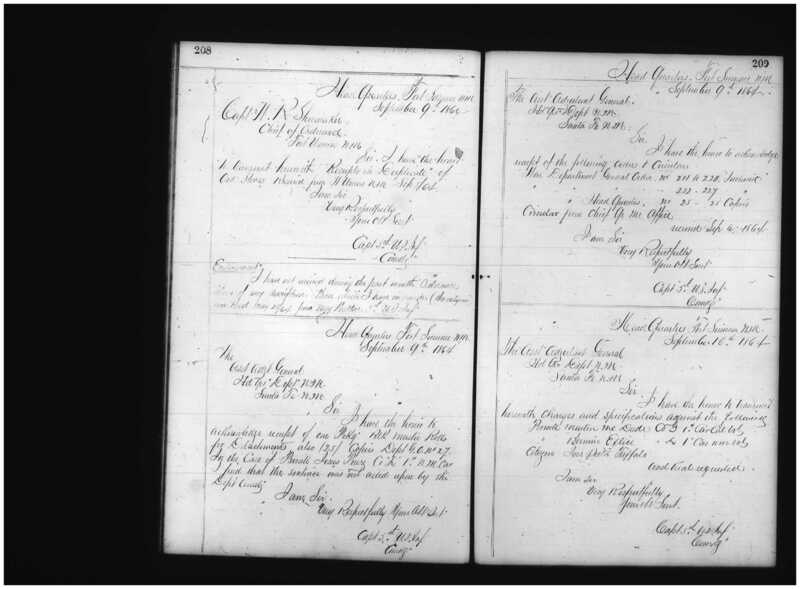 208
Head Quarters, Fort Sumner N.M.
September 9th 1864
Capt W. R. Shoemaker
Chief of Ordnance
Fort Union N.M.
Sir I have the honor
to transmit herewith Receipts in Duplicate of
Ord Stores Received from
I am Sir
Very Respectfully
Your Obt Servt
Capt 5th U.S. Inf
Comdg
Endorsement
I have not received during the past month Ordnance
of any description
Head Quarters Fort Sumner N.M.
September 9th 1864
The
Asst Adjt General
Hd Qrs Dept N.M.
Santa Fe N.M.
Sir
I have the honor to
acknowledge receipt of one Pckg Blk Muster Rolls
for Detachments also (25) Copies Dept G.O. No 27.
In the Case of Private Jesus Perez Co 1st N.M. Cav
I find that the sentence was not acted upon by the
Dept Comdg
I am, Sir.
Very Respectfully Your Obt Svt
Capt 5th U.S. Inf
Comdg
209
Head Quarters, Fort Sumner N.M.
September 9th 1864
The Asst Adjutant General.
Hd Qrs Dept N.M.
Santa Fe N.M.
Sir
I have the honor to acknowledge
receipt of the following Orders & Circulars
War Department General Orders No 211 to 220, Inclusive
" " " 222 - 227
" Head Quarters, No 25 - 25 Copies
Circular from Chief Office
received Sep 1864
I am Sir
Very Respectfully
Your Obt Servt
Capt 5th U.S. Inf
Comdg
Head Quarters Fort Sumner N.M.
September 10th 1864
The Asst Adjutant General
Hd Qr Dept N.M.
Santa Fe N.M.
Sir
I have the honor to transmit
herewith Charges and specifications against the following
Private Co D 1st Cav Cal Vol
" 1 Cav
Citizen
and trial requested.
I am Sir
Very Respectfully
Your Obt Servt.
Capt 5th U.S. Inf
Comdg